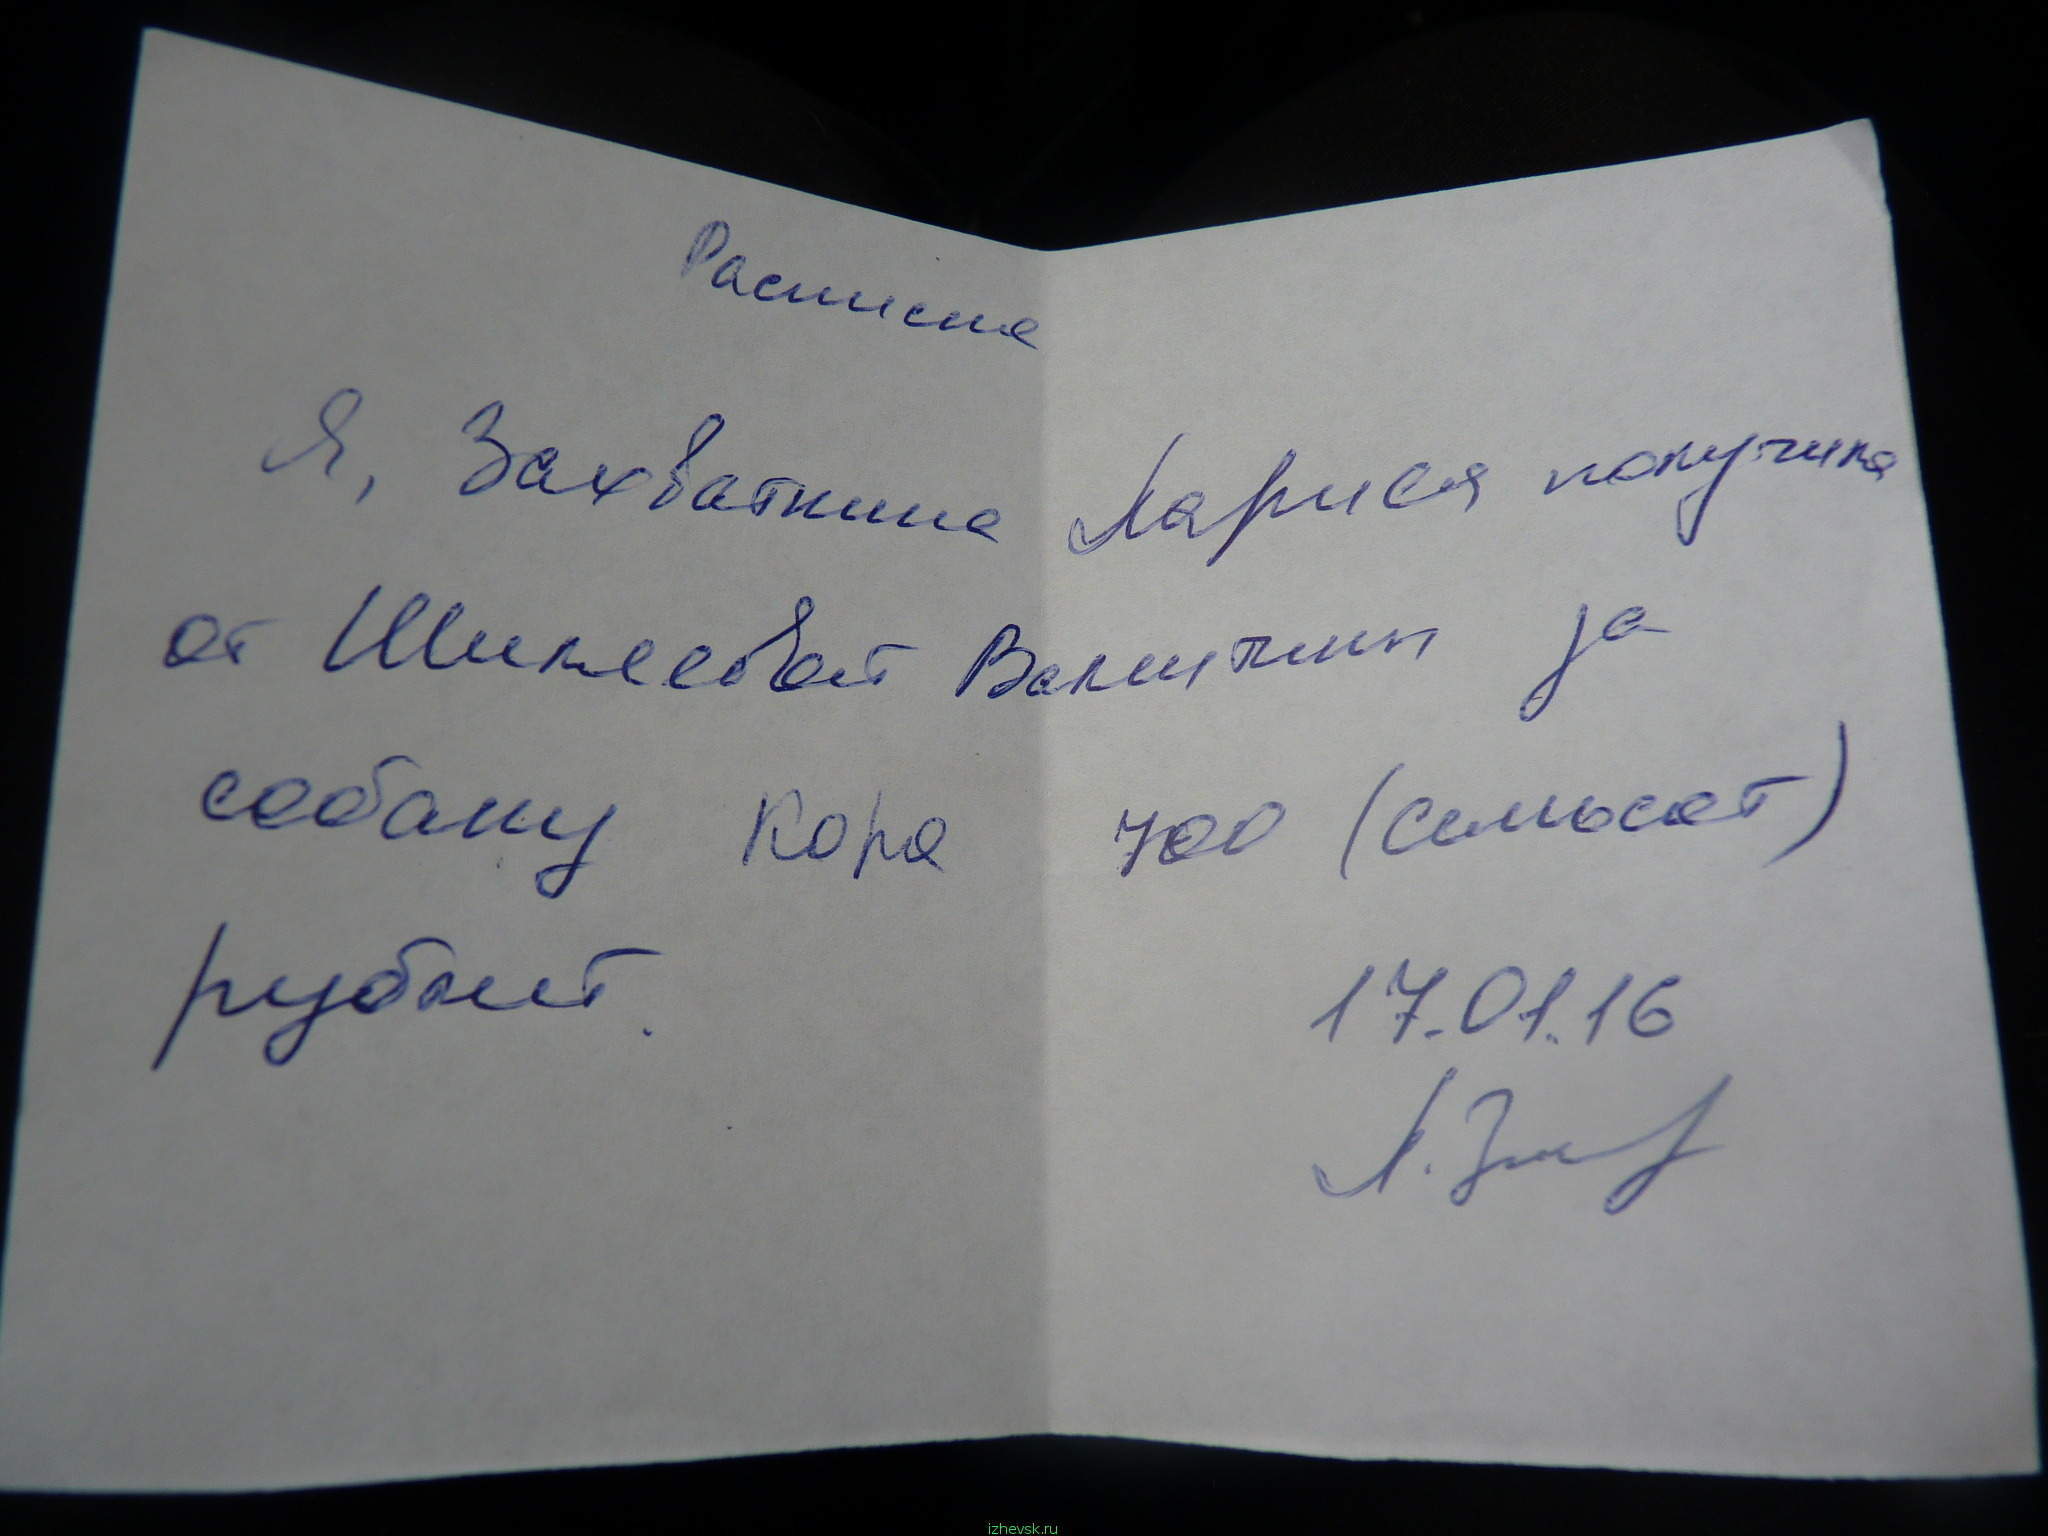 Расписка
Я, Захваткина Лариса получила
от Шиклеевой Валентины за
собаку Кора 700 (семьсот)
рублей.
17.01.16
Л. Зах
izhevsk.ru